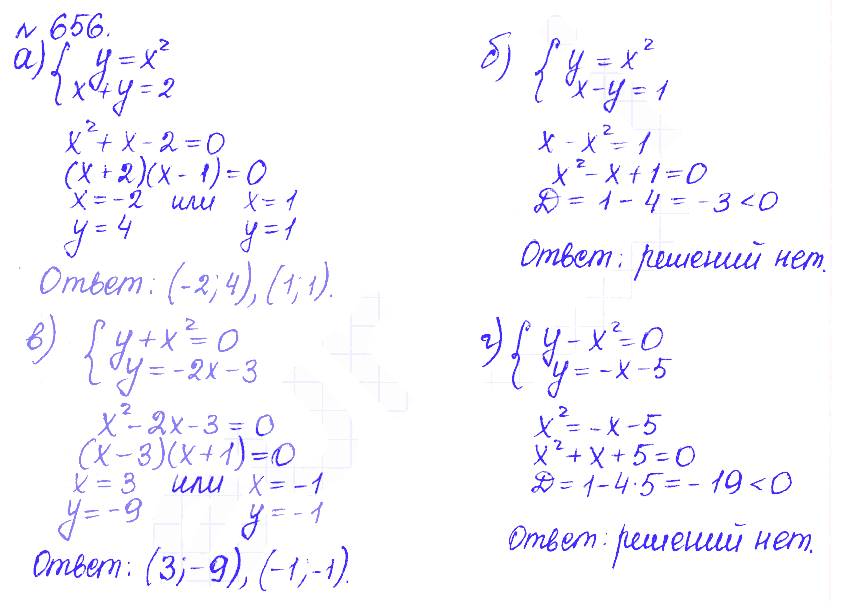 № 656.
а) { y = x²
x + y = 2
x² + x - 2 = 0
(x + 2)(x - 1) = 0
x = -2 или x = 1
y = 4 y = 1
Ответ: (-2; 4), (1; 1).
б) { y = x²
x - y = 1
x - x² = 1
x² - x + 1 = 0
D = 1 - 4 = -3 < 0
Ответ: решений нет.
в) { y + x² = 0
y = -2x - 3
x² - 2x - 3 = 0
(x - 3)(x + 1) = 0
x = 3 или x = -1
y = -9 y = -1
Ответ: (3; -9), (-1; -1).
г) { y - x² = 0
y = -x - 5
x² = -x - 5
x² + x + 5 = 0
D = 1 - 4·5 = -19 < 0
Ответ: решений нет.